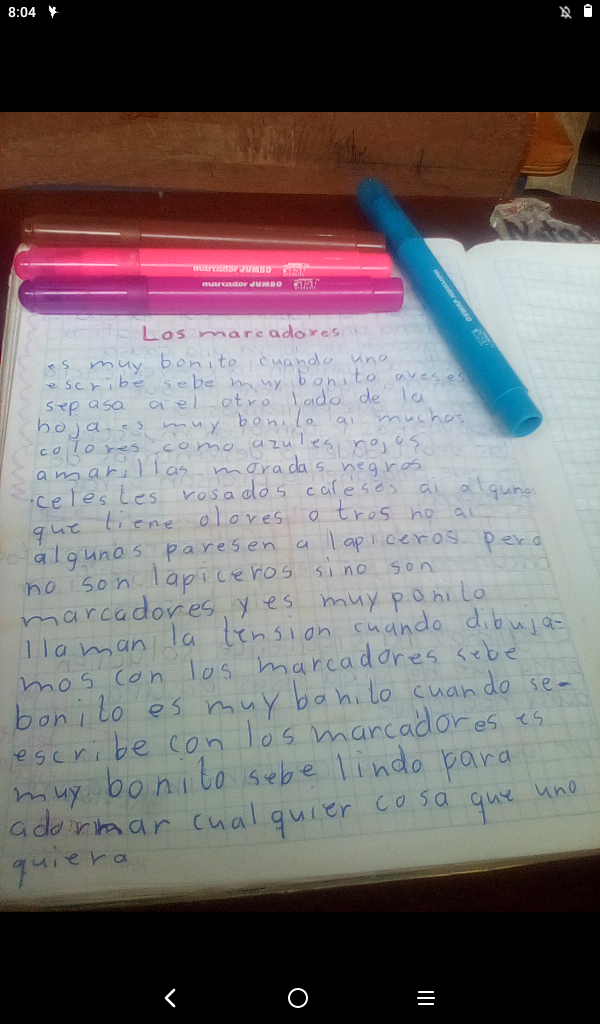 8:04
Notas
marcador JUMBO
marcador JUMBO
marcador JUMBO
Los marcadores
es muy bonito cuando uno
escribe sebe muy bonito aveses
sepasa a el otro lado de la
hoja es muy bonita ai muchos
collores como azules rojos
amarillas moradas negros
celestes rosados cafeses ai alguno
que tiene olores otros no ai
algunos paresen a lapiceros pero
no son lapiceros sino son
marcadores y es muy ponito
llaman la tension cuando dibuja=
mos con los marcadores sebe
bonito es muy banito cuando se-
escribe con los marcadores es
muy bonito sebe lindo para
adormar cualquier cosa que uno
quiera